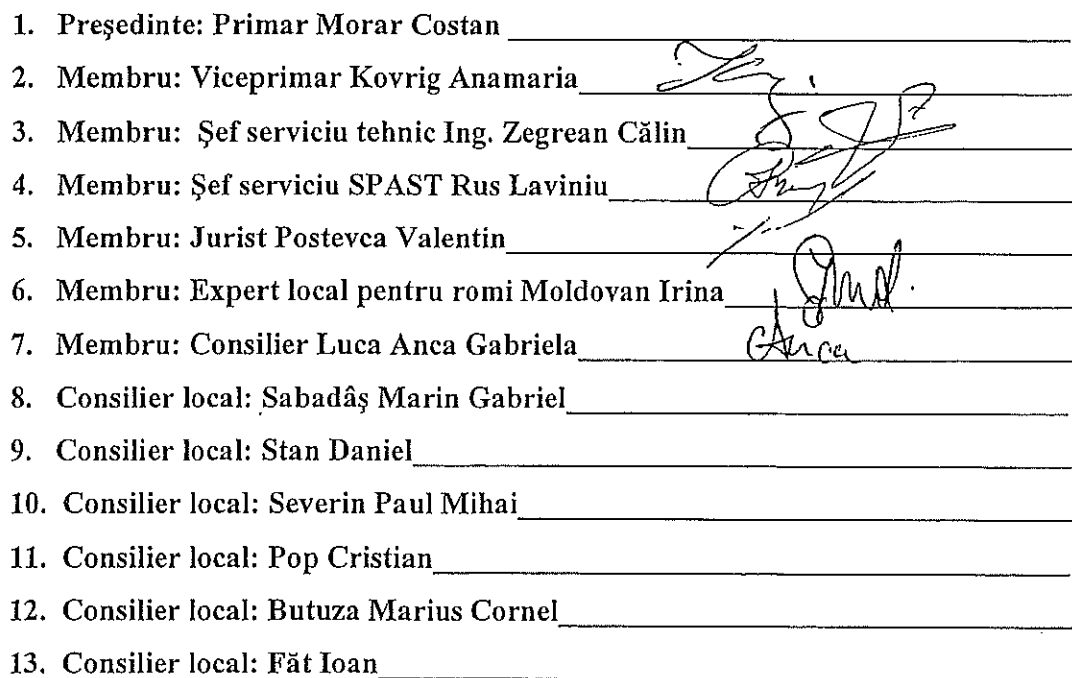 1. Președinte: Primar Morar Costan
2. Membru: Viceprimar Kovrig Anamaria
3. Membru: Șef serviciu tehnic Ing. Zegrean Călin
4. Membru: Șef serviciu SPAST Rus Laviniu
5. Membru: Jurist Postevca Valentin
6. Membru: Expert local pentru romi Moldovan Irina
7. Membru: Consilier Luca Anca Gabriela Anca
8. Consilier local: Sabadâș Marin Gabriel
9. Consilier local: Stan Daniel
10. Consilier local: Severin Paul Mihai
11. Consilier local: Pop Cristian
12. Consilier local: Butuza Marius Cornel
13. Consilier local: Făt Ioan